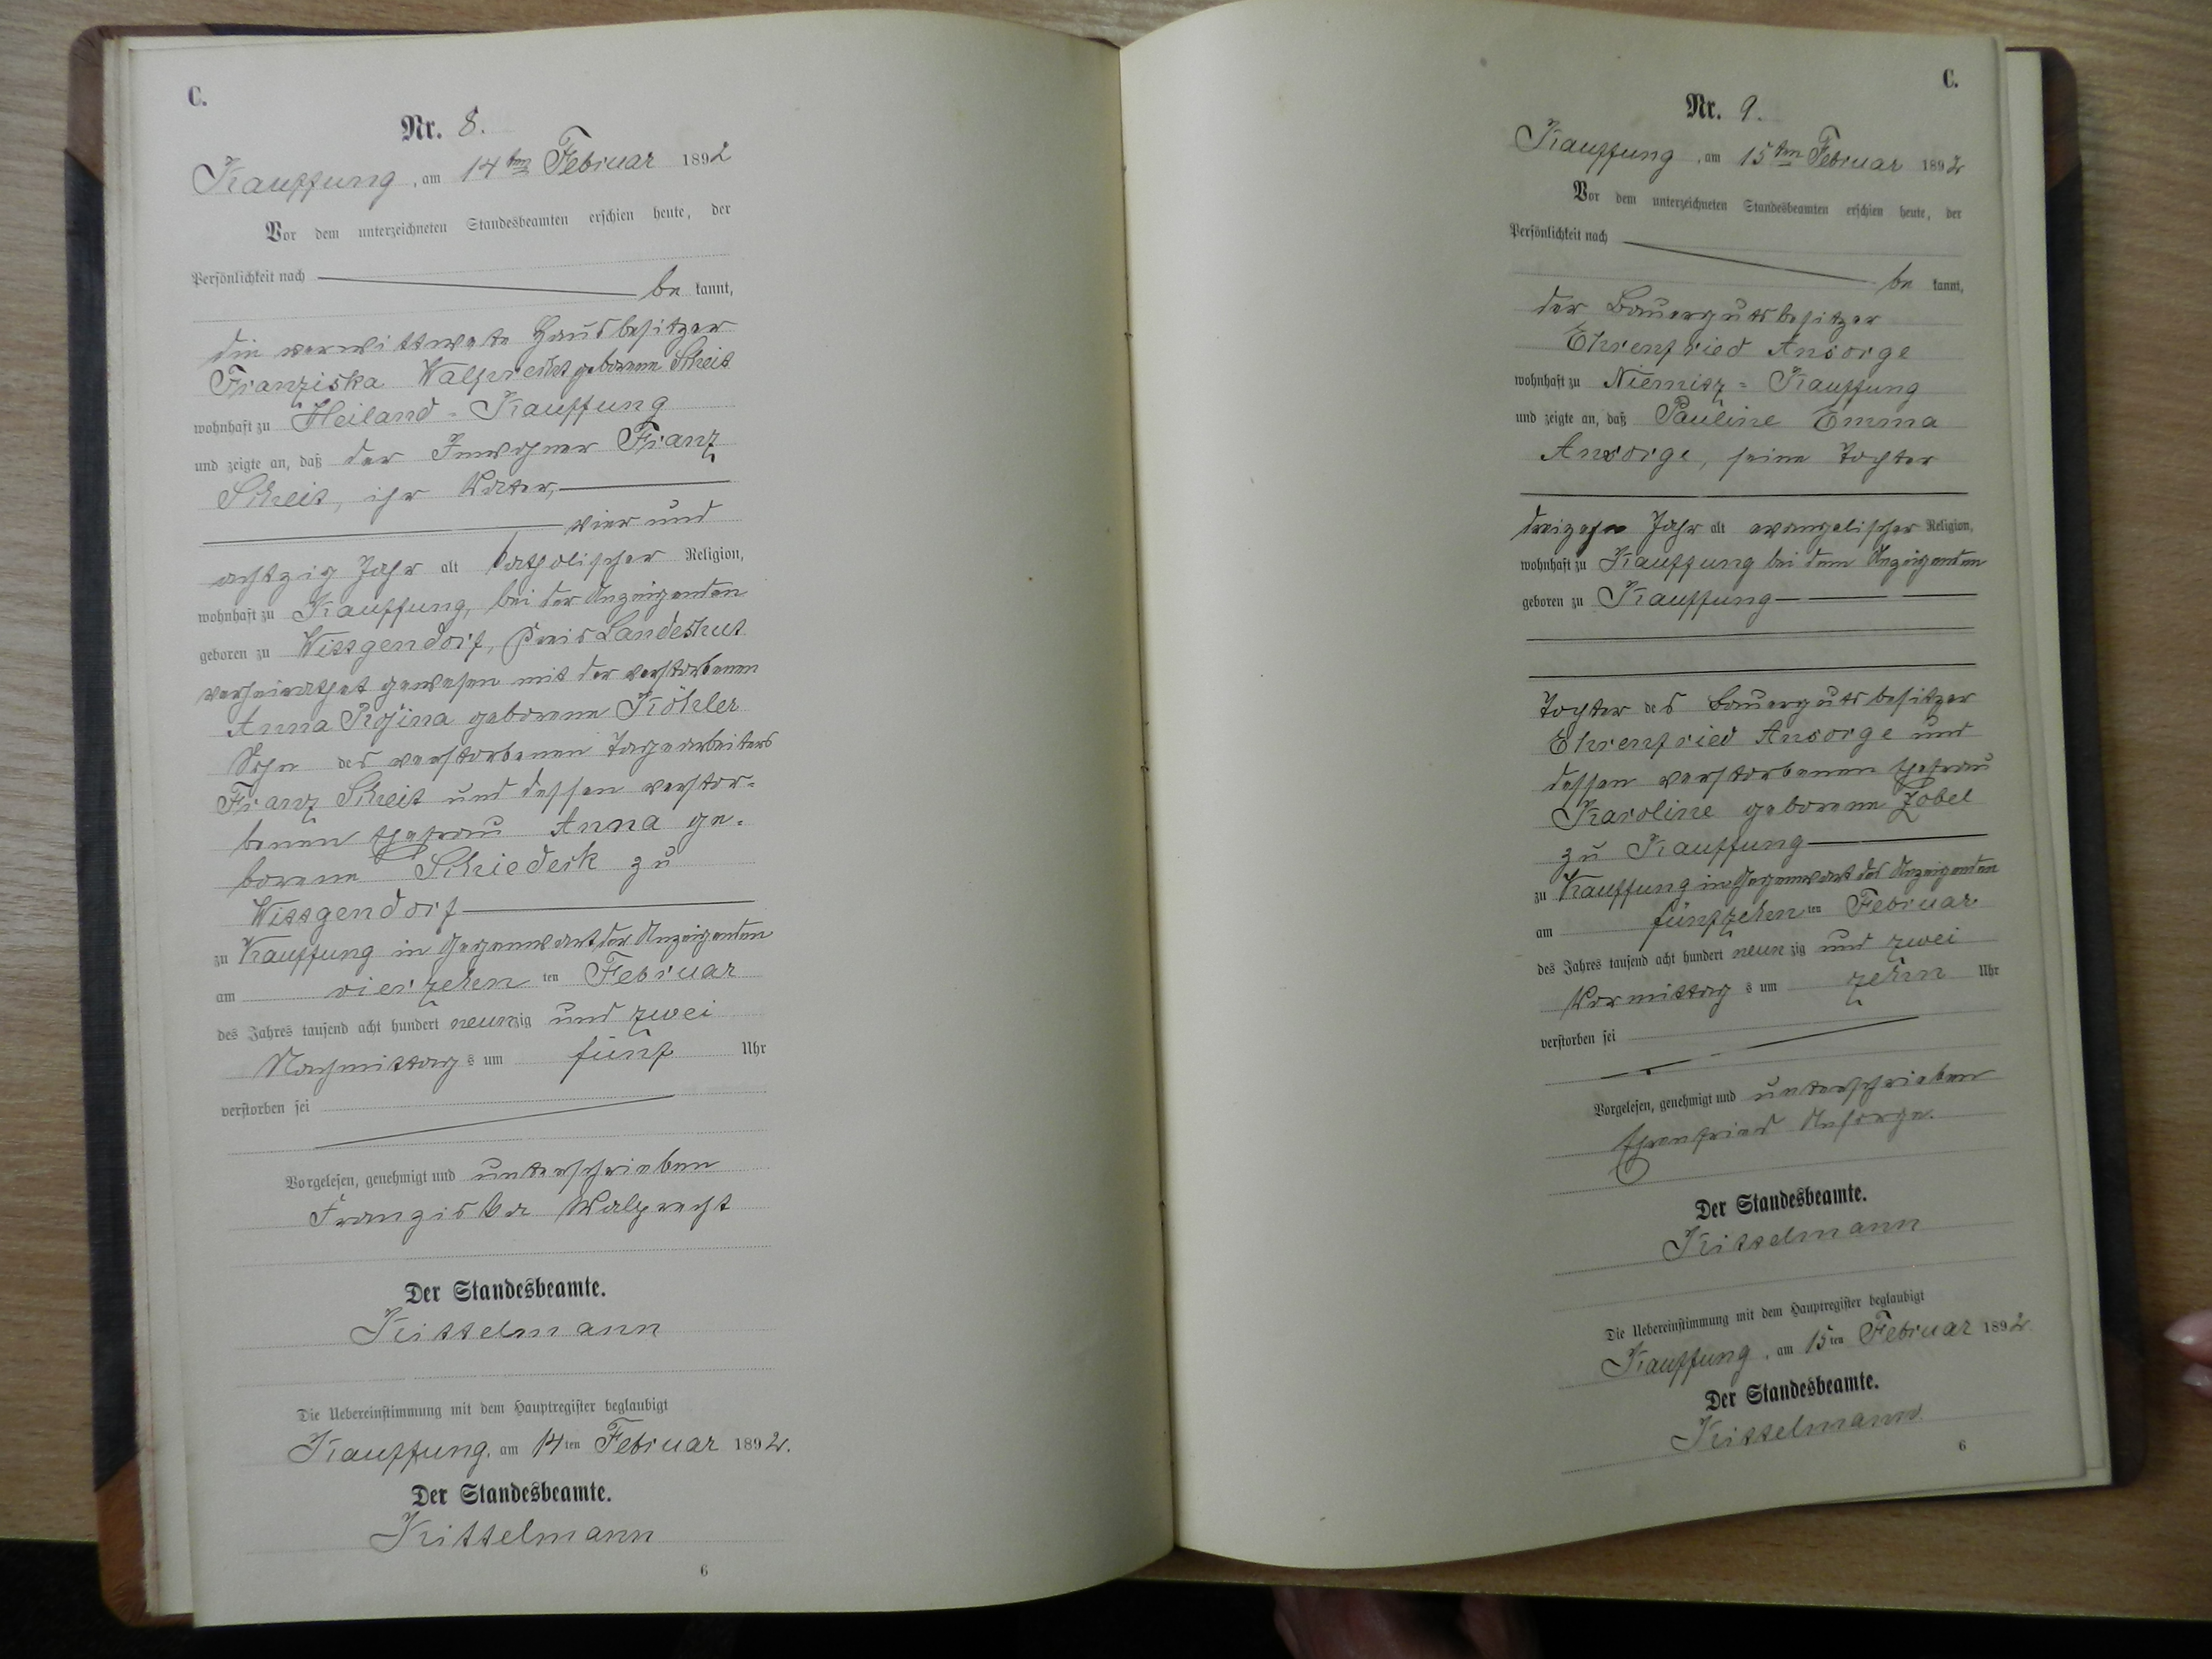 C.
Nr. 8.
Kauffung, am 14ten Februar 1892
Vor dem unterzeichneten Standesbeamten erschien heute, der
Persönlichkeit nach
be kannt,
die verwittwete Hausbesitzer
Franziska Walprecht geborene Scheit
wohnhaft zu Heiland-Kauffung
und zeigte an, daß der Inwohner Franz
Scheit, ihr Vater,
vier und
achtzig Jahr alt katholischer Religion,
wohnhaft zu Kauffung, bei der Anzeigenden
geboren zu Wittgendorf, Kreis Landeshut
verheirathet gewesen mit der verstorbenen
Anna Rosina geborene Köhler
Sohn des verstorbenen Tagearbeiters
Franz Scheit und dessen verstor-
benen Ehefrau Anna ge-
borene Schiedeck zu
Wittgendorf
zu Kauffung in Gegenwart der Anzeigenden
am vierzehn ten Februar
des Jahres tausend acht hundert neunzig und zwei
Nachmittag s um fünf Uhr
verstorben sei
Vorgelesen, genehmigt und unterschrieben
Franziska Walprecht
Der Standesbeamte.
Kittelmann
Die Uebereinstimmung mit dem Hauptregister beglaubigt
Kauffung, am 14ten Februar 1892.
Der Standesbeamte.
Kittelmann
6
C.
Nr. 9.
Kauffung, am 15ten Februar 1892
Vor dem unterzeichneten Standesbeamten erschien heute, der
Persönlichkeit nach
be kannt,
der Bauergutsbesitzer
Ehrenfried Ansorge
wohnhaft zu Niemitz-Kauffung
und zeigte an, daß Pauline Emma
Ansorge, seine Tochter
dreizehn Jahr alt evangelischer Religion,
wohnhaft zu Kauffung bei dem Anzeigenden
geboren zu Kauffung
Tochter des Bauergutsbesitzer
Ehrenfried Ansorge und
dessen verstorbenen Ehefrau
Karoline geborene Zobel
zu Kauffung
zu Kauffung in Gegenwart des Anzeigenden
am fünfzehn ten Februar
des Jahres tausend acht hundert neunzig und zwei
Vormittag s um zehn Uhr
verstorben sei
Vorgelesen, genehmigt und unterschrieben
Ehrenfried Ansorge.
Der Standesbeamte.
Kittelmann
Die Uebereinstimmung mit dem Hauptregister beglaubigt
Kauffung, am 15ten Februar 1892.
Der Standesbeamte.
Kittelmann
6